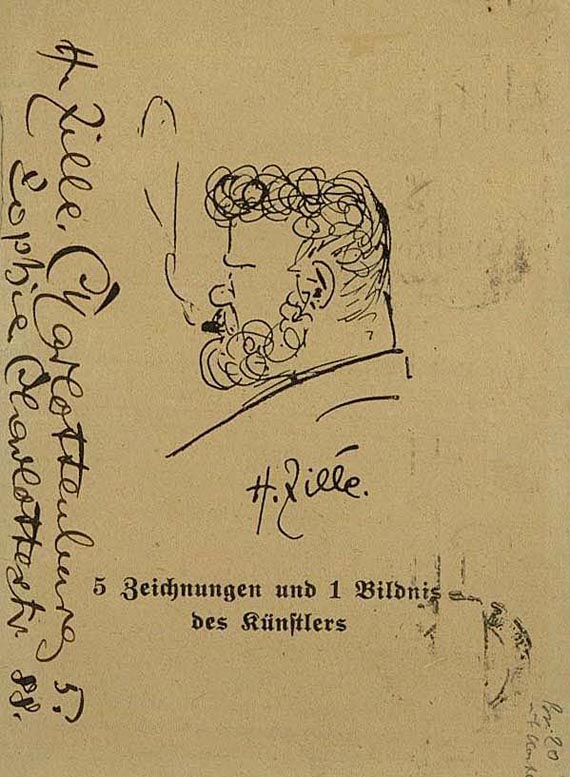 H. Zille. Charlottenburg 5.
Sophie Charlottestr 88.
H. Zille.
5 Zeichnungen und 1 Bildnis
des Künstlers